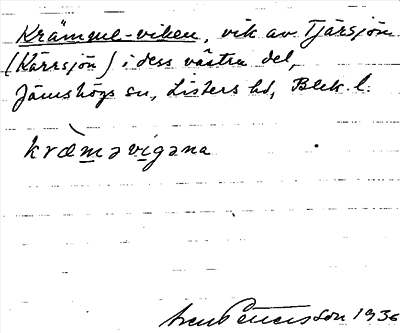 Krämmle-viken, vik av Tjärsjön
(Kärrsjön) i dess västra del,
Jämshögs sn, Listers hd, Blek. l.
kræmavigana
Pettersson 1936